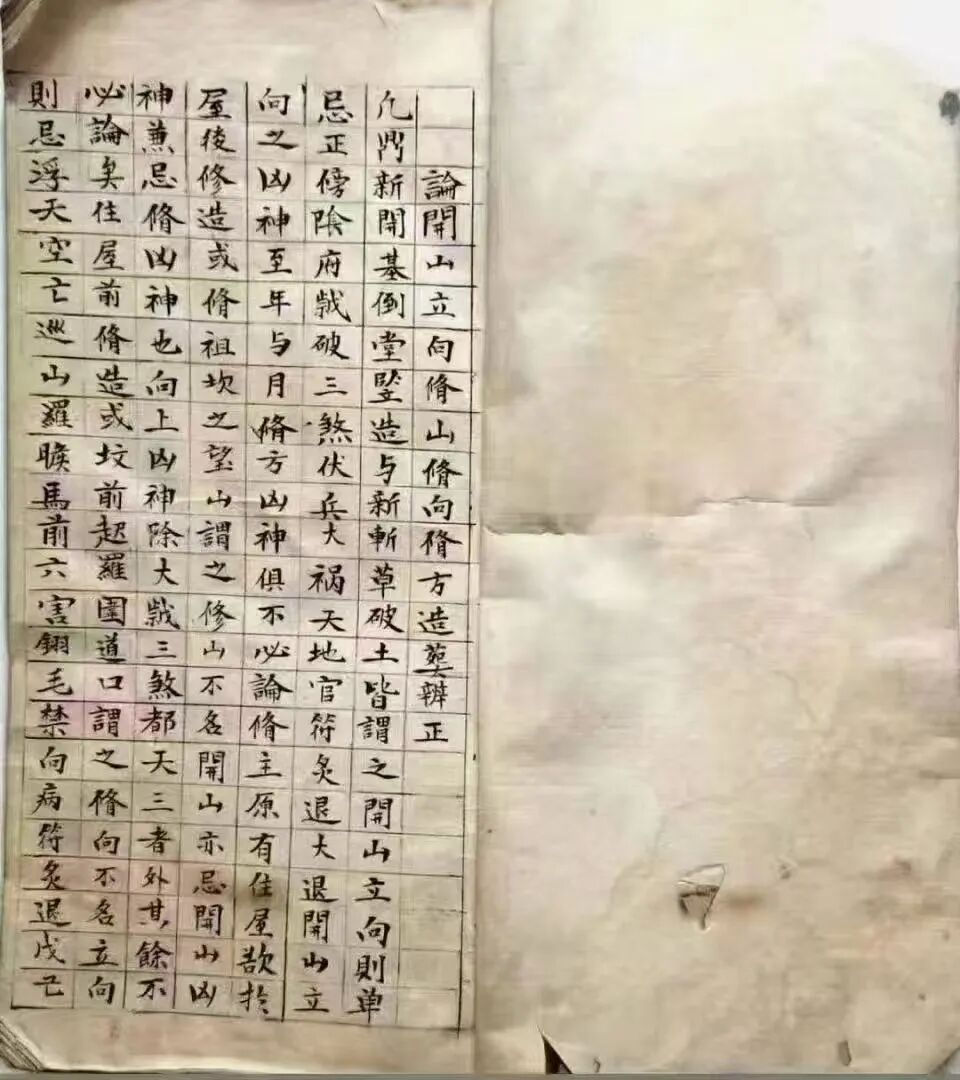 論開山立向脩山脩向脩方造葬辨正
凢鼎新開基倒堂竪造与新斬草破土皆謂之開山立向則单
忌正傍陰府戝破三煞伏兵大禍天地官符炙退大退開山立
向之凶神至年与月脩方凶神俱不必論脩主原有住屋欲扵
屋後修造或脩祖坎之望山謂之修山不名開山亦忌開山凶
神兼忌脩凶神也向上凶神除大戝三煞都天三者外其餘不
必論矣住屋前脩造或坟前起羅圍道口謂之脩向不名立向
則忌浮天空亡巡山羅睺馬前六害翎毛禁向病符炙退戊己